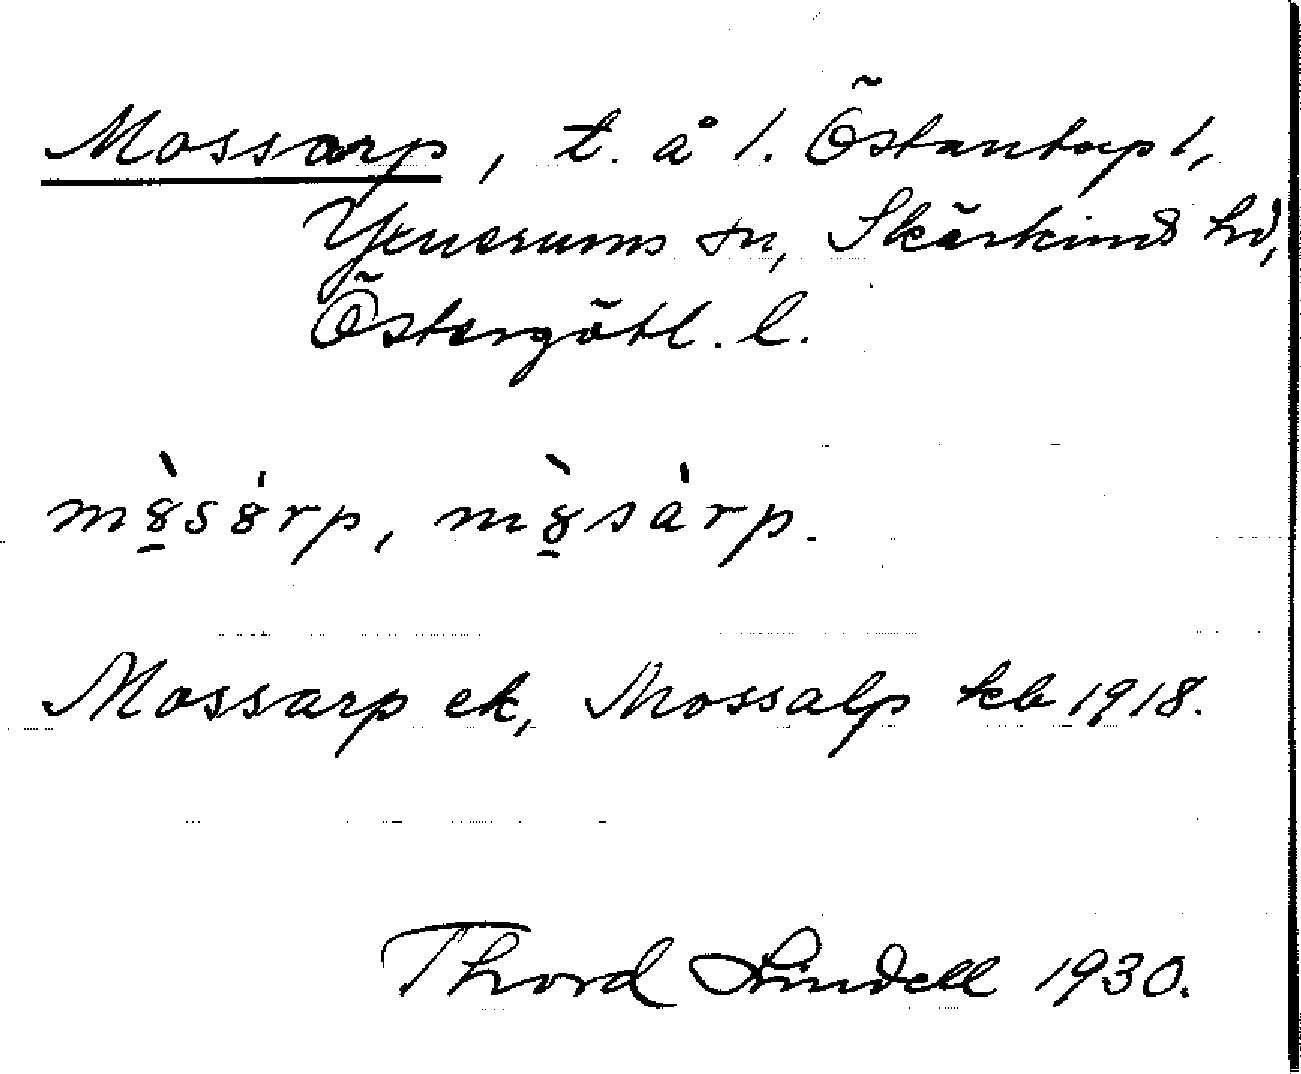 Mossarp, t. å 1. Östantorp 1,
Yxnerums sn, Skärkinds hd,
Östergötl. l.
mo̱̊̀s
Mossarp ek, Mossalp kb 1918.
Thord Lindell 1930.